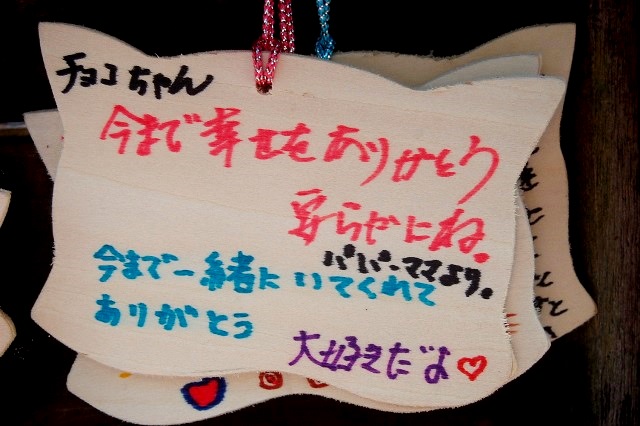 チョコちゃん
今まで幸せをありがとう
安らかにね。
パパ・ママより。
今まで一緒にいてくれて
ありがとう
大好きだよ♡